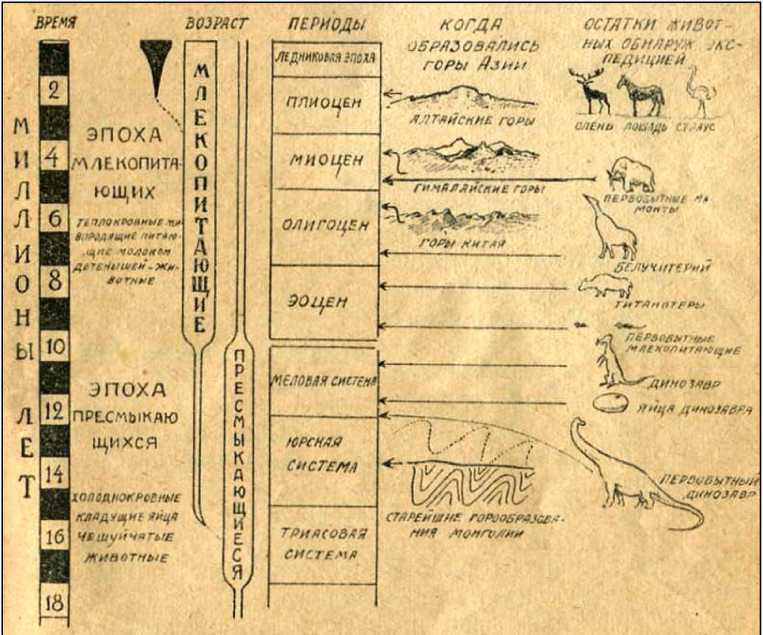 ВРЕМЯ
ВОЗРАСТ
ПЕРИОДЫ
КОГДА
ОБРАЗОВАЛИСЬ
ГОРЫ АЗИИ
ОСТАТКИ ЖИВОТ-
НЫХ ОБНАРУЖ. ЭКС-
ПЕДИЦИЕЙ
МИЛЛИОНЫ ЛЕТ
2
4
6
8
10
12
14
16
18
ЭПОХА
МЛЕКОПИТА-
ЮЩИХ
ТЕПЛОКРОВНЫЕ ЖИ-
ВОРОДЯЩИЕ ПИТАЮ-
ЩИЕ МОЛОКОМ
ДЕТЕНЫШЕЙ-ЖИ-
ВОТНЫЕ
ЭПОХА
ПРЕСМЫКАЮ
ЩИХСЯ
ХОЛОДНОКРОВНЫЕ
КЛАДУЩИЕ ЯЙЦА
ЧЕШУЙЧАТЫЕ
ЖИВОТНЫЕ
МЛЕКОПИТАЮЩИЕ
ПРЕСМЫКАЮЩИЕСЯ
ЛЕДНИКОВАЯ ЭПОХА
ПЛИОЦЕН
МИОЦЕН
ОЛИГОЦЕН
ЭОЦЕН
МЕЛОВАЯ СИСТЕМА
ЮРСКАЯ
СИСТЕМА
ТРИАСОВАЯ
СИСТЕМА
АЛТАЙСКИЕ ГОРЫ
ГИМАЛАЙСКИЕ ГОРЫ
ГОРЫ КИТАЯ
СТАРЕЙШИЕ ГОРООБРАЗОВА-
НИЯ МОНГОЛИИ
ОЛЕНЬ ЛОШАДЬ СТРАУС
ПЕРВОБЫТНЫЕ МА
МОНТЫ
БЕЛУЧИТЕРИЙ
ТИТАНОТЕРЫ
ПЕРВОБЫТНЫЕ
МЛЕКОПИТАЮЩИЕ
ДИНОЗАВР
ЯЙЦА ДИНОЗАВРА
ПЕРВОБЫТНЫЙ
ДИНОЗАВР